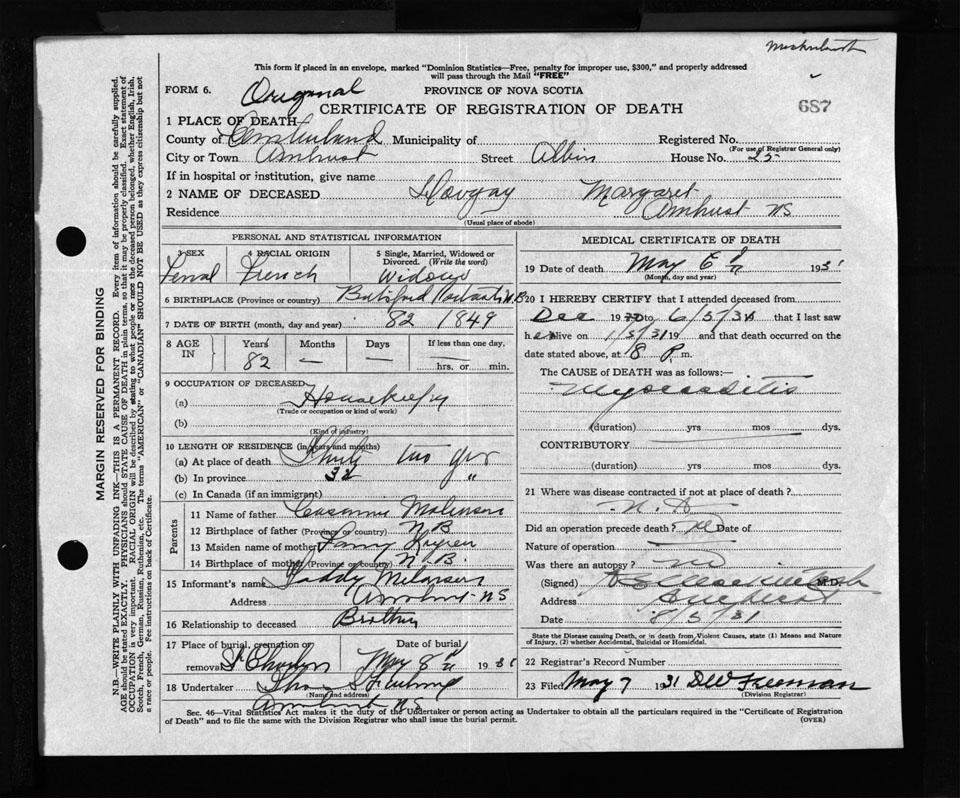 This form if placed in an envelope, marked "Dominion Statistics—Free, penalty for improper use, $300," and properly addressed
will pass through the Mail "FREE"
FORM 6.
Original
PROVINCE OF NOVA SCOTIA
687
CERTIFICATE OF REGISTRATION OF DEATH
1 PLACE OF DEATH
County of Cumberland Municipality of Registered No.
(For use of Registrar General only)
City or Town Amherst Street Albion House No. 25
If in hospital or institution, give name
2 NAME OF DECEASED Margaret
Residence Amherst NS
(Usual place of abode)
PERSONAL AND STATISTICAL INFORMATION
3 SEX 4 RACIAL ORIGIN 5 Single, Married, Widowed or Divorced. (Write the word)
Femal French Widow
6 BIRTHPLACE (Province or country) Botsford N.B
7 DATE OF BIRTH (month, day and year) 82 1849
8 AGE IN Years Months Days If less than one day.
82 — — hrs. or min.
9 OCCUPATION OF DECEASED
(a) Housekeeping
(Trade or occupation or kind of work)
(b)
(Kind of industry)
10 LENGTH OF RESIDENCE (in years and months)
(a) At place of death Thirty two yrs
(b) In province 32 "
(c) In Canada (if an immigrant)
Parents
11 Name of father
12 Birthplace of father (Province or country) N.B.
13 Maiden name of mother
14 Birthplace of mother (Province or country) N.B.
15 Informant's name
Address Amherst NS
16 Relationship to deceased Brother
17 Place of burial, cremation or removal St Charles Date of burial May 8th 1931
18 Undertaker
(Name and address)
Amherst NS
MEDICAL CERTIFICATE OF DEATH
19 Date of death May 6th 1931
(Month, day and year)
20 I HEREBY CERTIFY that I attended deceased from
Dec 1930 to 6/5/31 that I last saw
her alive on 1/5/31 19 and that death occurred on the
date stated above, at 8 P. m.
The CAUSE of DEATH was as follows:
Myocarditis
(duration) yrs mos dys.
CONTRIBUTORY
(duration) yrs mos dys.
21 Where was disease contracted if not at place of death?
Did an operation precede death? No Date of
Nature of operation
Was there an autopsy? no
(Signed) M.D.
Address Amherst
Date 8/5/31
State the Disease causing Death, or in death from Violent Causes, state (1) Means and Nature
of Injury, (2) whether Accidental, Suicidal or Homicidal.
22 Registrar's Record Number
23 Filed May 7 1931 DW Freeman
(Division Registrar)
Sec. 46—Vital Statistics Act makes it the duty of the Undertaker or person acting as Undertaker to obtain all the particulars required in the "Certificate of Registration
of Death" and to file the same with the Division Registrar who shall issue the burial permit.
(OVER)
MARGIN RESERVED FOR BINDING
N.B.—WRITE PLAINLY WITH UNFADING INK—THIS IS A PERMANENT RECORD. Every item of information should be carefully supplied.
AGE should be stated EXACTLY. PHYSICIANS should STATE CAUSE OF DEATH in plain terms, so that it may be properly classified. Exact statement of
OCCUPATION is very important. RACIAL ORIGIN will be described by stating to what people or race the deceased person belonged, whether English, Irish,
Scotch, French, German, Russian, Ruthenian, etc. The terms "AMERICAN" or "CANADIAN" SHOULD NOT BE USED as they express citizenship but not
a race or people. See instructions on back of Certificate.